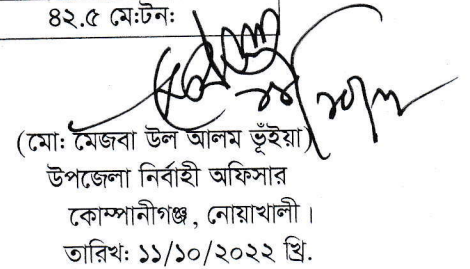 ৪২.৫ মে:টন:
(মো: মেজবা উল আলম ভূঁইয়া)
উপজেলা নির্বাহী অফিসার
কোম্পানীগঞ্জ, নোয়াখালী।
তারিখ: ১১/১০/২০২২ খ্রি.